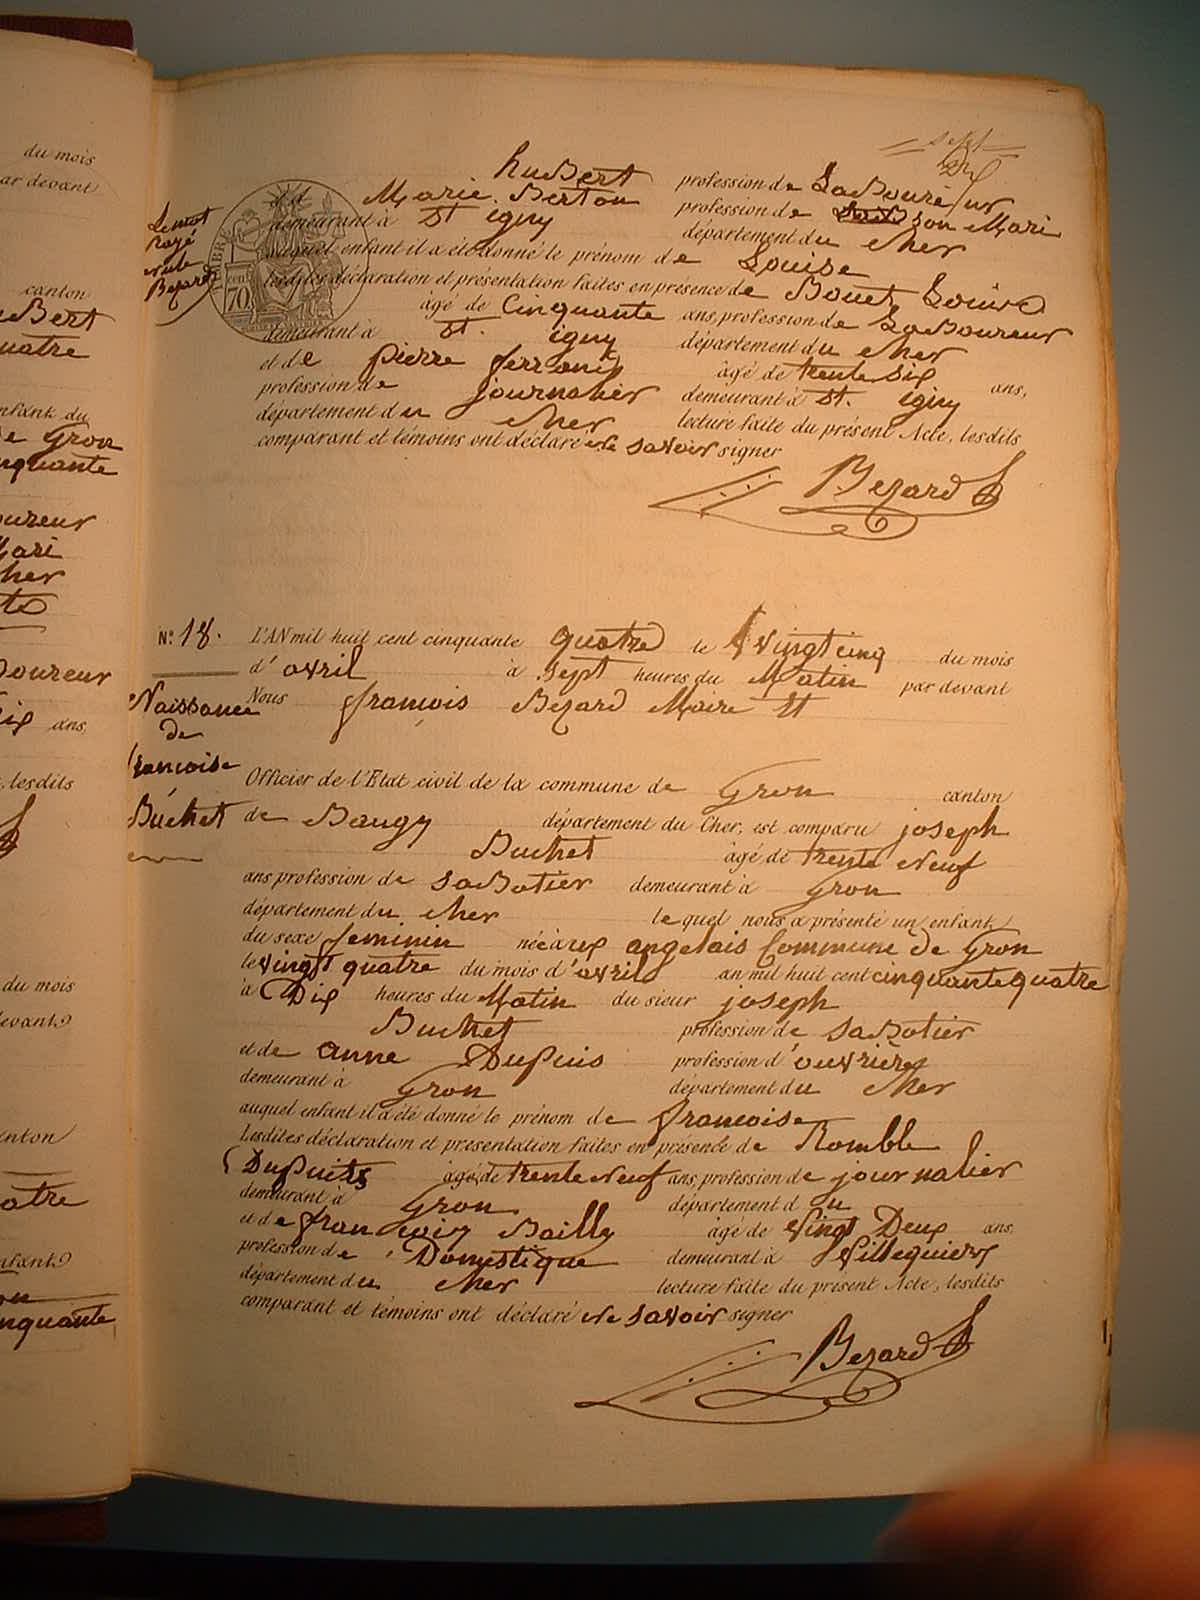 sept
du mois
par devant
hubert profession de Laboureur
et d Marie Berton profession de son Mari
demeurant à St igny département du cher
auquel enfant il a été donné le prénom de Louise
lesdites déclaration et présentation faites en présence de Bouet Louis
âgé de Cinquante ans, profession de Laboureur
demeurant à St. igny département du cher
et de pierre âgé de trente six ans,
profession de journalier demeurant à St. igny
département du cher lecture faite du présent Acte, lesdits
comparant et témoins ont déclaré ne savoir signer
Bezard
Lemot
Rayé
nule
Bezard
cent
70
canton
uatre
enfant du
de Gron
nquante
oureur
Mari
cher
Boureur
six ans,
, lesdits
du mois
devant
canton
uatre
enfant
nquante
N.º 18. L'AN mil huit cent cinquante quatre le vingt cinq du mois
d'avril à sept heures du Matin par devant
Nous françois Bezard Maire St
Naissance
de
françoise
Buchet
Officier de l'Etat civil de la commune de Gron canton
de Baugy département du Cher, est comparu joseph
Buchet âgé de trente Neuf
ans, profession de saBotier demeurant à Gron
département du cher lequel nous a présenté un enfant
du sexe feminin née à angelais Commune de Gron
le vingt quatre du mois d'avril an mil huit cent cinquante quatre
à Dix heures du Matin du sieur joseph
Buchet profession de saBotier
et de anne DuPuis profession d'ouvrière
demeurant à Gron département du cher
auquel enfant il a été donné le prénom de françoise
Lesdites déclaration et présentation faites en présence de Romble
DuPuits âgé de trente Neuf ans, profession de journalier
demeurant à Gron département du
et de françois Bailly âgé de vingt Deux ans.
profession de Domestique demeurant à Villequiers
département du cher lecture faite du présent Acte, lesdits
comparant et témoins ont déclaré ne savoir signer
Bezard